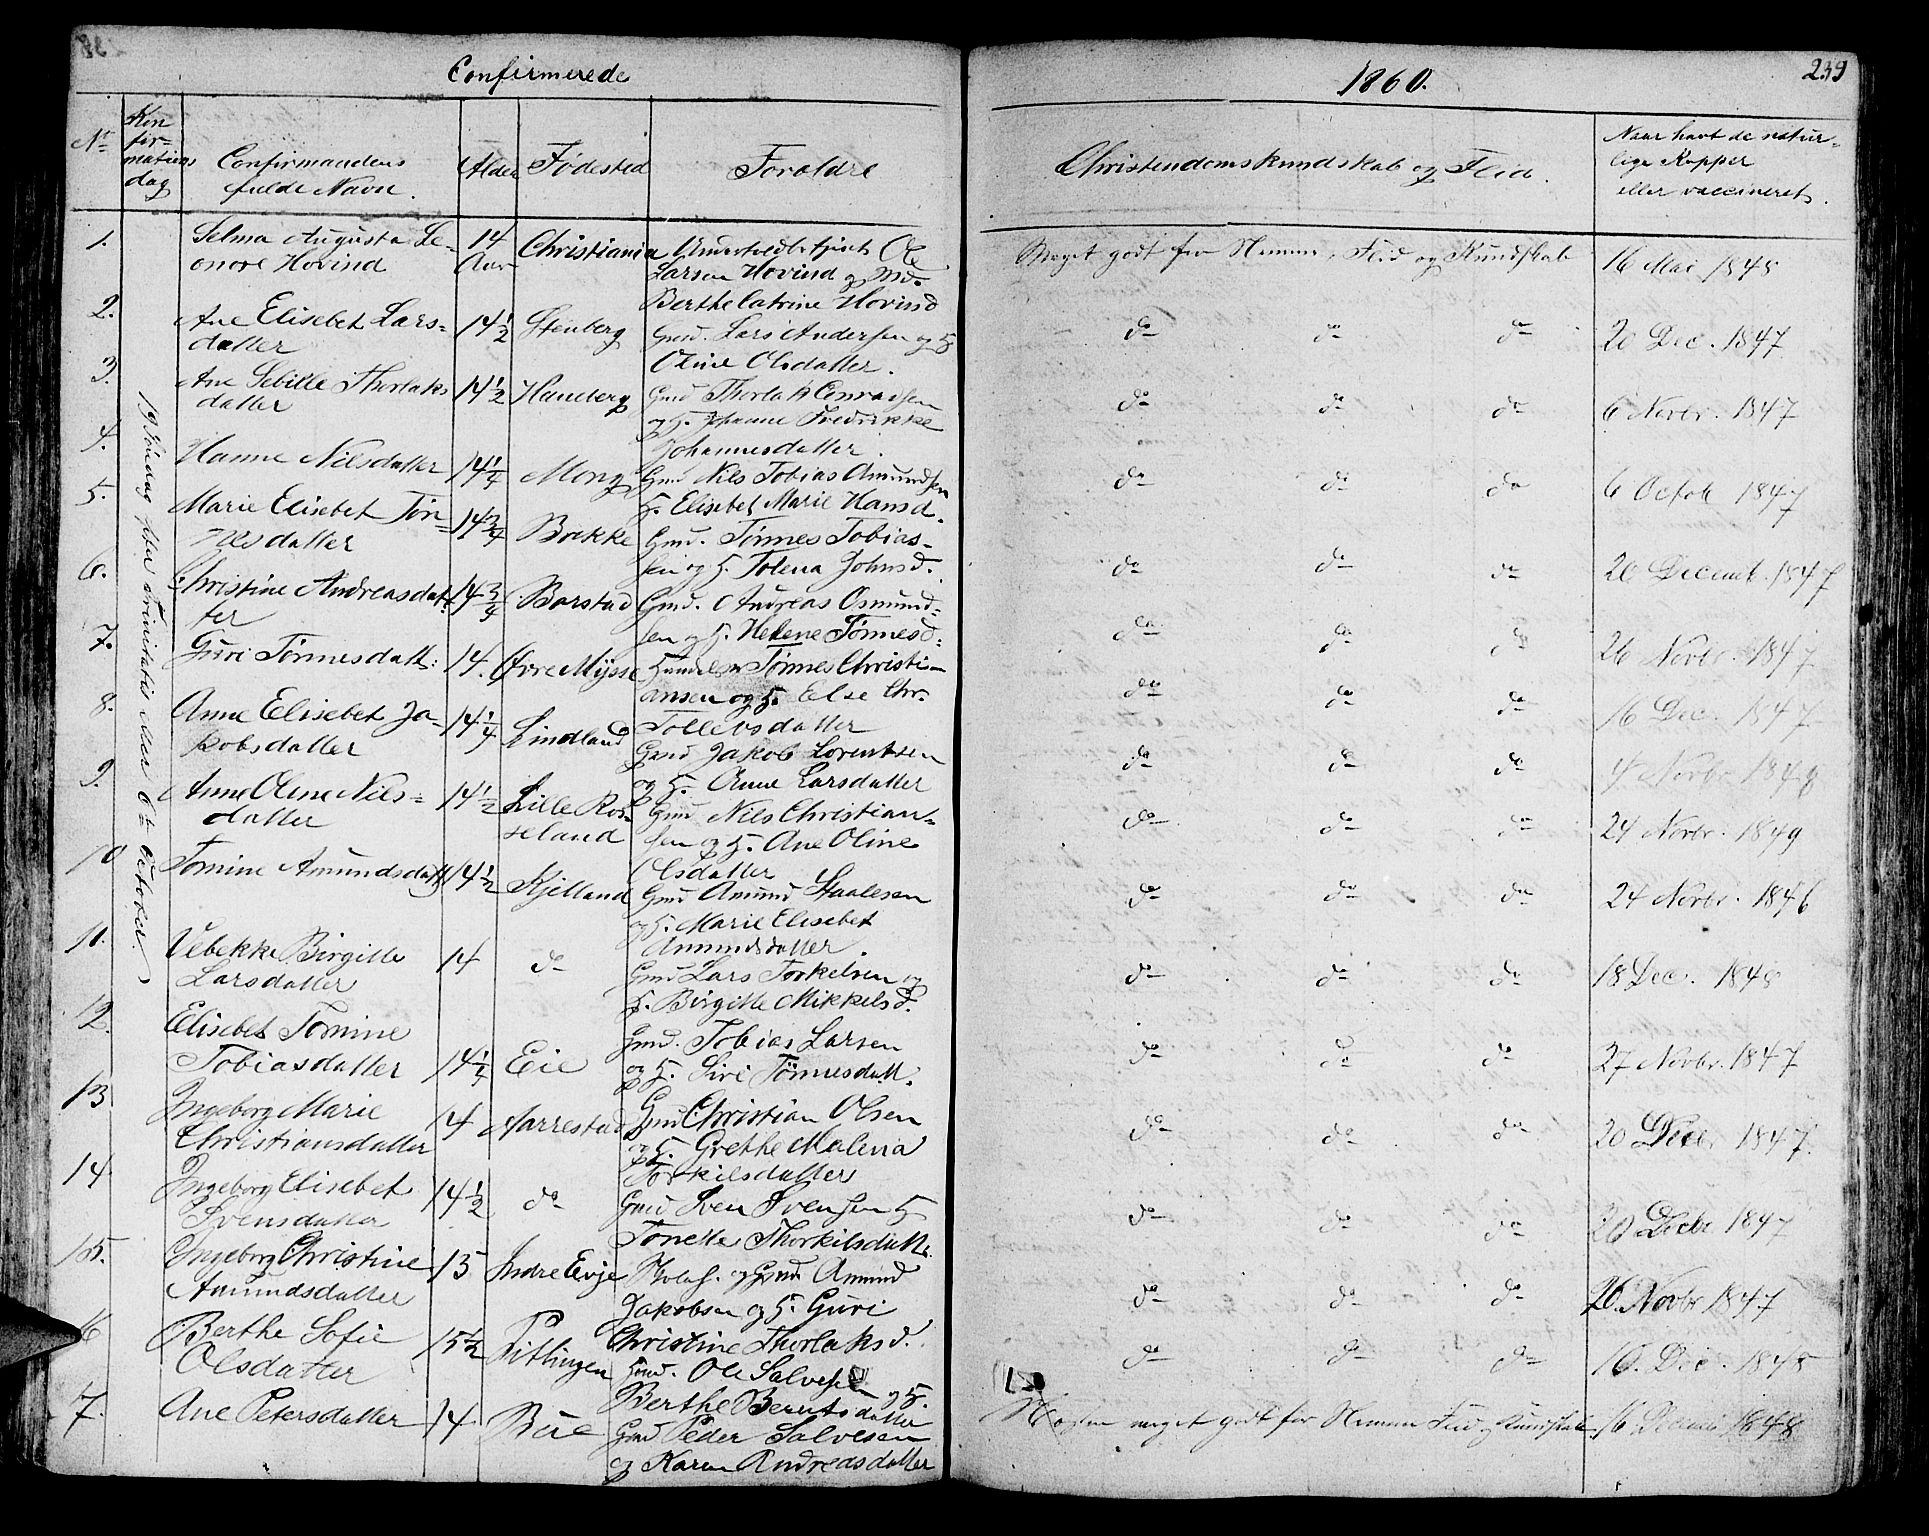 Confirmerede
1860.
239
Nt
Kon
fir-
mations
dag
Confirmandens
fulde Navn.
Alder
Fødested
Forældre
Christendomskundskab og Flid.
Naar havt de natur-
lige Kopper
eller vaccineret.
19 Søndag efter Trinitatis den October.
1.
Selma Augusta Le-
onore Hovind
14
Aar
Christiania
Ole
Larsen Hovind og Md.
Berthe Catrine Hovind
Meget godt for Nemme, Flid og Kundskab
16 Mai 1848
2.
Ane Elisebet Lars-
datter
14 1/2
Stenberg
Gmd. Lars Andersen og H
Oline Olsdatter.
do do do
20 Dec. 1847
3.
Ane Sebille Thorlaks
datter
14 1/2
Haneberg
Gmd Thorlak Conradsen
og H. Johanne Fredrikke
Johannesdatter.
do do do
6 Novbr. 1847
4.
Hanne Nilsdatter
14 1/4
Mong
Gmd Nils Tobias Amundsen
H. Elisebet Marie Hansd.
do do do
6 Octob 1847
5.
Marie Elisebet Tøn-
nesdatter
14 3/4
Brekke
Gmd. Tønnes Tobias-
sen og H. Tolena Johnsd.
do do do
20 Decemb. 1847
6.
Christine Andreasdat-
ter
14 3/4
Barstad
Gmd. Andreas Osmund-
sen og H. Helene Tønnesd.
do do do
26 Novbr. 1847
7.
Guri Tønnesdatt:
14.
Øvre Mysse
Tønnes Christi-
ansen og H. Else Chr.
Tollevsdatter
do do do
16 Dec. 1847
8.
Anne Elisebet Ja-
kobsdatter
14 1/4
Lindland
Gmd Jakob Lorentsen
og H. Anne Larsdatter
do do do
4 Novbr 1848
9.
Anne Oline Nils-
datter
14 1/2
Lille Ros-
seland
Gmd Nils Christian-
sen og H. Ane Oline
Olsdatter
do do do
24 Novbr. 1849
10
Tomine Amundsdatt
14 1/2
Kjelland
Gmd Amund Staalesen
og H. Marie Elisebet
Amundsdatter.
do do do
24 Novbr. 1846
11.
Vebekke Birgitte
Larsdatter
14
do
Gmd Lars Torkelsen og
H. Birgitte Mikkelsd.
do do do
18 Dec. 1848
12.
Elisebet Tomine
Tobiasdatter
14 1/4
Eie
Gmd. Tobias Larsen
og H. Siri Tønnesdatt.
do do do
27 Novbr. 1847
13
Ingeborg Marie
Christiansdatter
14
Aarrestad
Gmd. Christian Olsen
og H. Grethe Malena
Torkilsdatter
do do do
20 Decbr 1847.
14
Ingeborg Elisebet
Svensdatter
14 1/2
do
Gmd Sven Svensen H
Tonette Thorkilsdatt.
do do do
20 Decbr 1847
15.
Ingeborg Christine
Amundsdatter
15
Indre Eeje
og Gmd. Amund
Jakobsen og H. Guri
Christine Thorlaksd.
do do do
26 Novbr 1847
16
Berthe Sofie
Olsdatter
15 1/2
Pitlingen
Gmd. Ole Salvesen
og H.
Berthe Berntsdatter
do do do
16. Dec. 1848
7.
Ane Petersdatter
14
Bere
Gmd Peder Salvesen
og Karen Andreasdatter
Næsten meget godt for Nemme Flid og Kundskab.
16 1848